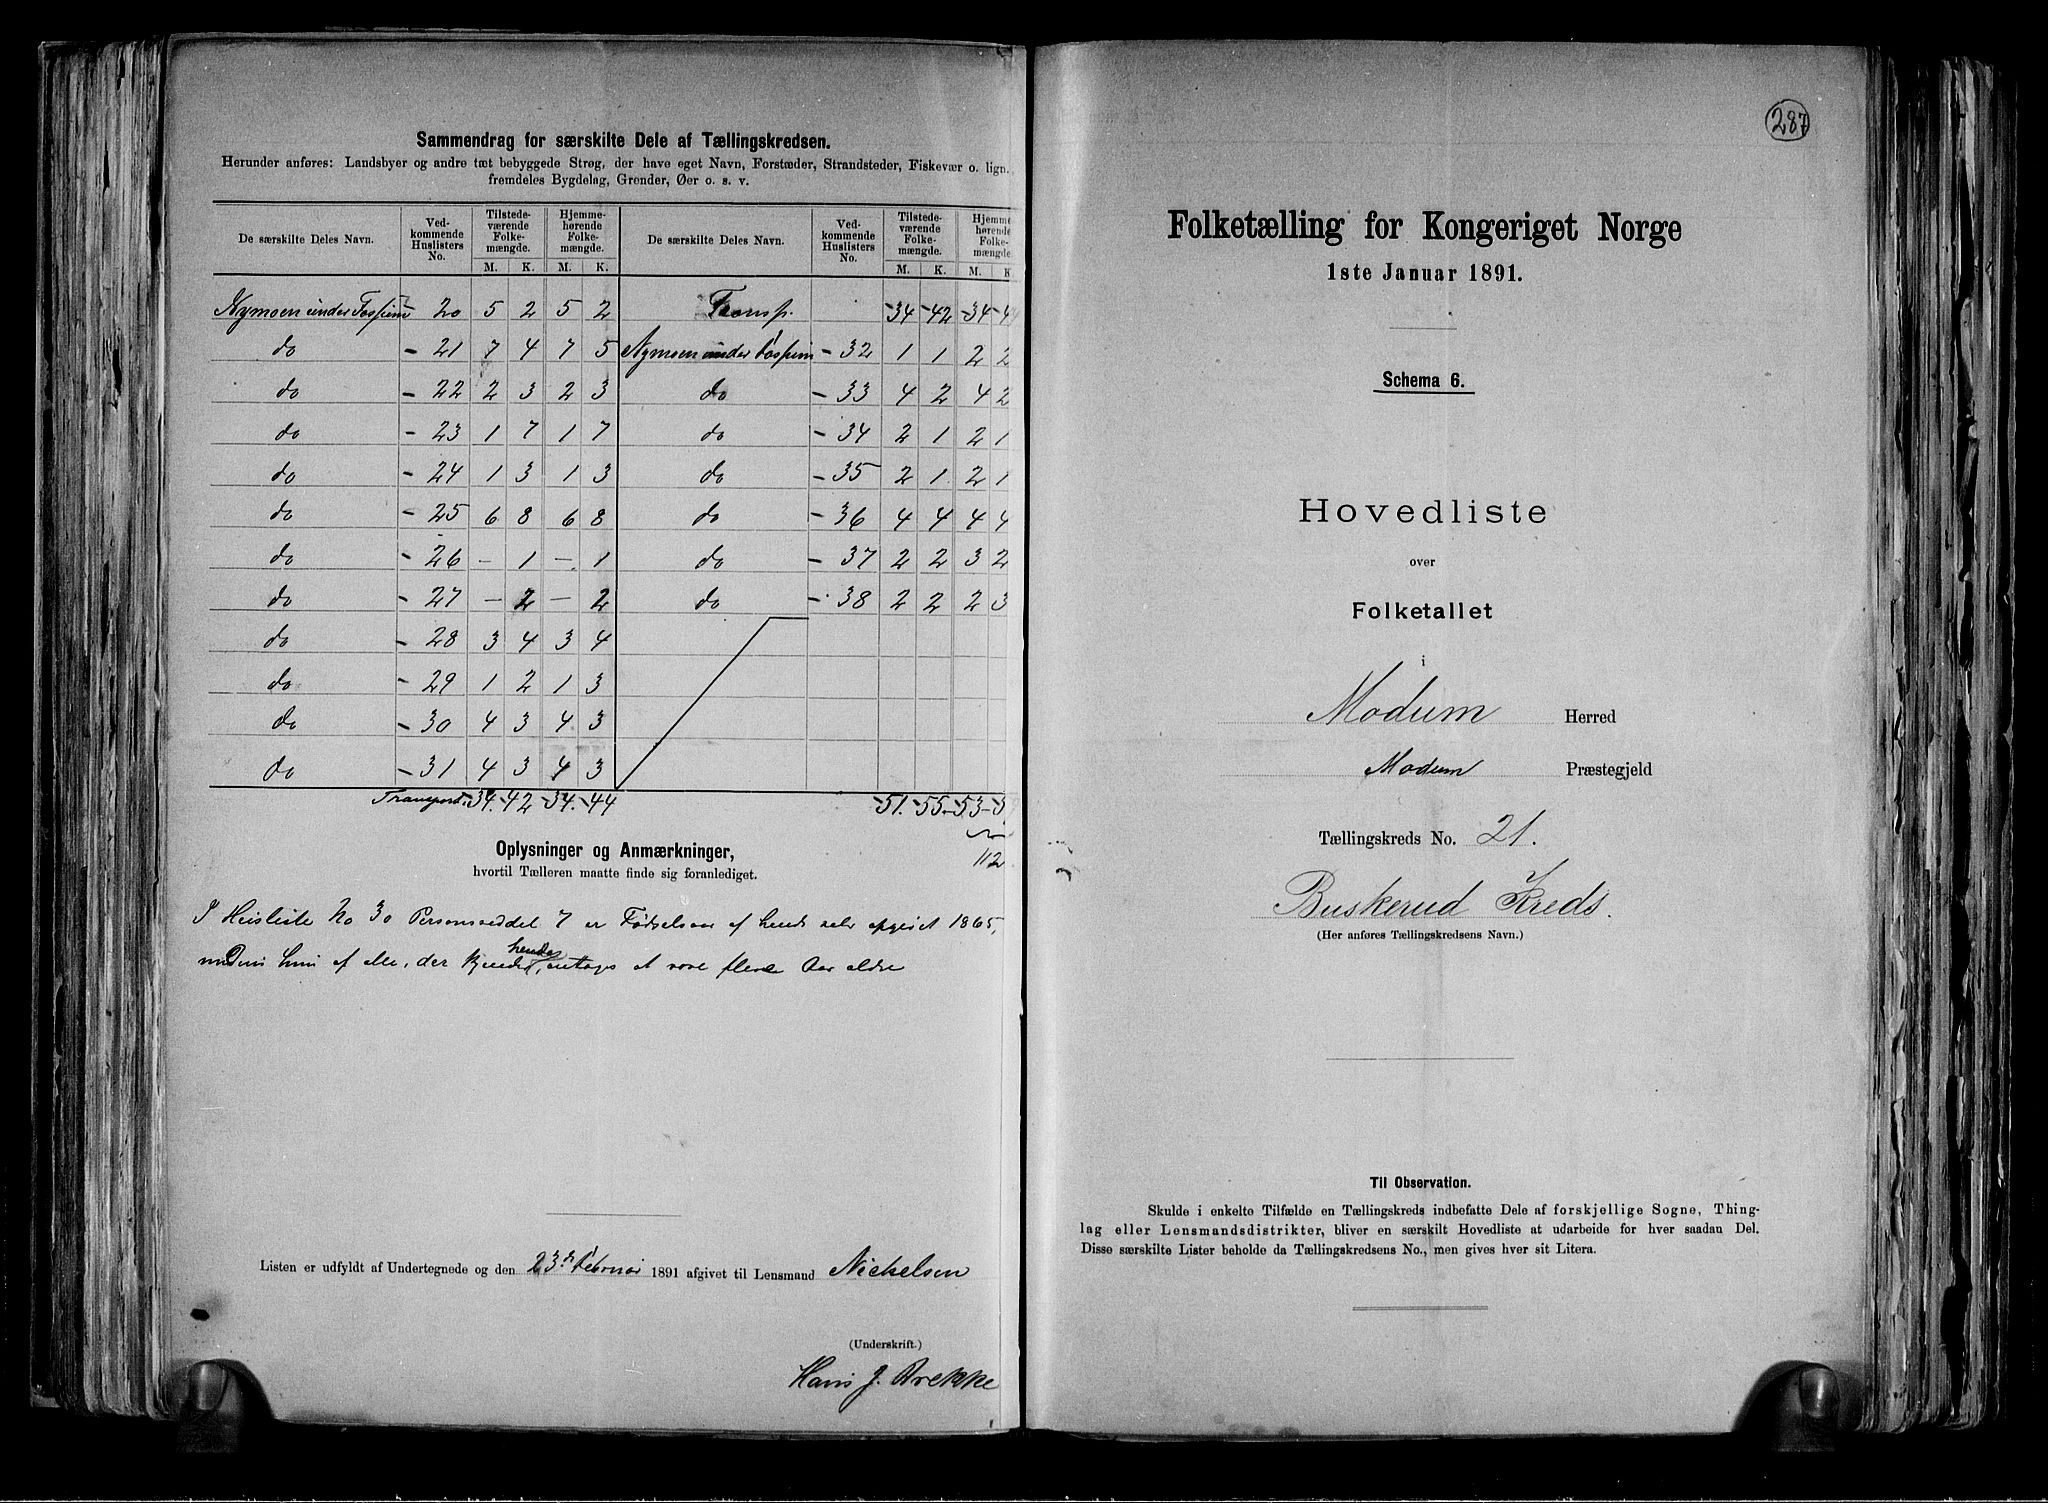 Sammendrag for særskilte Dele af Tællingskredsen.
Herunder anføres: Landsbyer og andre tæt bebyggede Strøg, der have eget Navn, Forstæder, Strandsteder, Fiskevær o. lign.,
fremdeles Bygdelag, Grender, Øer o. s. v.
De særskilte Deles Navn. Ved-kommende Huslisters No. Tilstede-værende Folke-mængde. Hjemme-hørende Folke-mængde. De særskilte Deles Navn. Ved-kommende Huslisters No. Tilstede-værende Folke-mængde. Hjemme-hørende Folke-mængde.
M. K. M. K. M. K. M. K.
Nymoen under Fossum - 20 5 2 5 2 Transp. -34 -42 -34 -44
do - 21 7 4 7 5 Nymoen under Fossum - 32 1 1 2 2
do - 22 2 3 2 3 do - 33 4 2 4 2
do - 23 1 7 1 7 do - 34 2 1 2 1
do - 24 1 3 1 3 do - 35 2 1 2 1
do - 25 6 8 6 8 do - 36 4 4 4 4
do - 26 - 1 - 1 do - 37 2 2 3 2
do - 27 - 2 - 2 do - 38 2 2 2 3
do - 28 3 4 3 4
do - 29 1 2 1 3
do - 30 4 3 4 3
do - 31 4 3 4 3
Transport. -34. -42 -34. -44 -51. -55. -53 -
112
Oplysninger og Anmærkninger,
hvortil Tælleren maatte finde sig foranlediget.
I Husliste No 30 Personseddel 7 er Fødselsaar af hende selv opgivet 1865,
medens hun af alle, der kjender hende, antages at være flere Aar ældre
Listen er udfyldt af Undertegnede og den 23de Februar 1891 afgivet til Lensmand Nickelsen
(Underskrift.)
Hans J. Brekke
287
Folketælling for Kongeriget Norge
1ste Januar 1891.
Schema 6.
Hovedliste
over
Folketallet
i
Modum Herred
Modum Præstegjeld
Tællingskreds No. 21.
Buskerud Kreds.
(Her anføres Tællingskredsens Navn.)
Til Observation.
Skulde i enkelte Tilfælde en Tællingskreds indbefatte Dele af forskjellige Sogne, Thing-
lag eller Lensmandsdistrikter, bliver en særskilt Hovedliste at udarbeide for hver saadan Del.
Disse særskilte Lister beholde da Tællingskredsens No., men gives hver sit Litera.